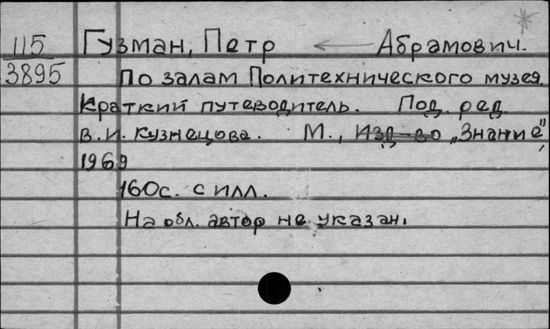 115 Гузман, Петр ← Абрамович.
3895 По залам Политехнического музея.
Краткий путеводитель. Под. ред.
В. И. Кузнецова. М., Изд-во „Знание",
1969
160с. с илл.
На обл. автор не указан.